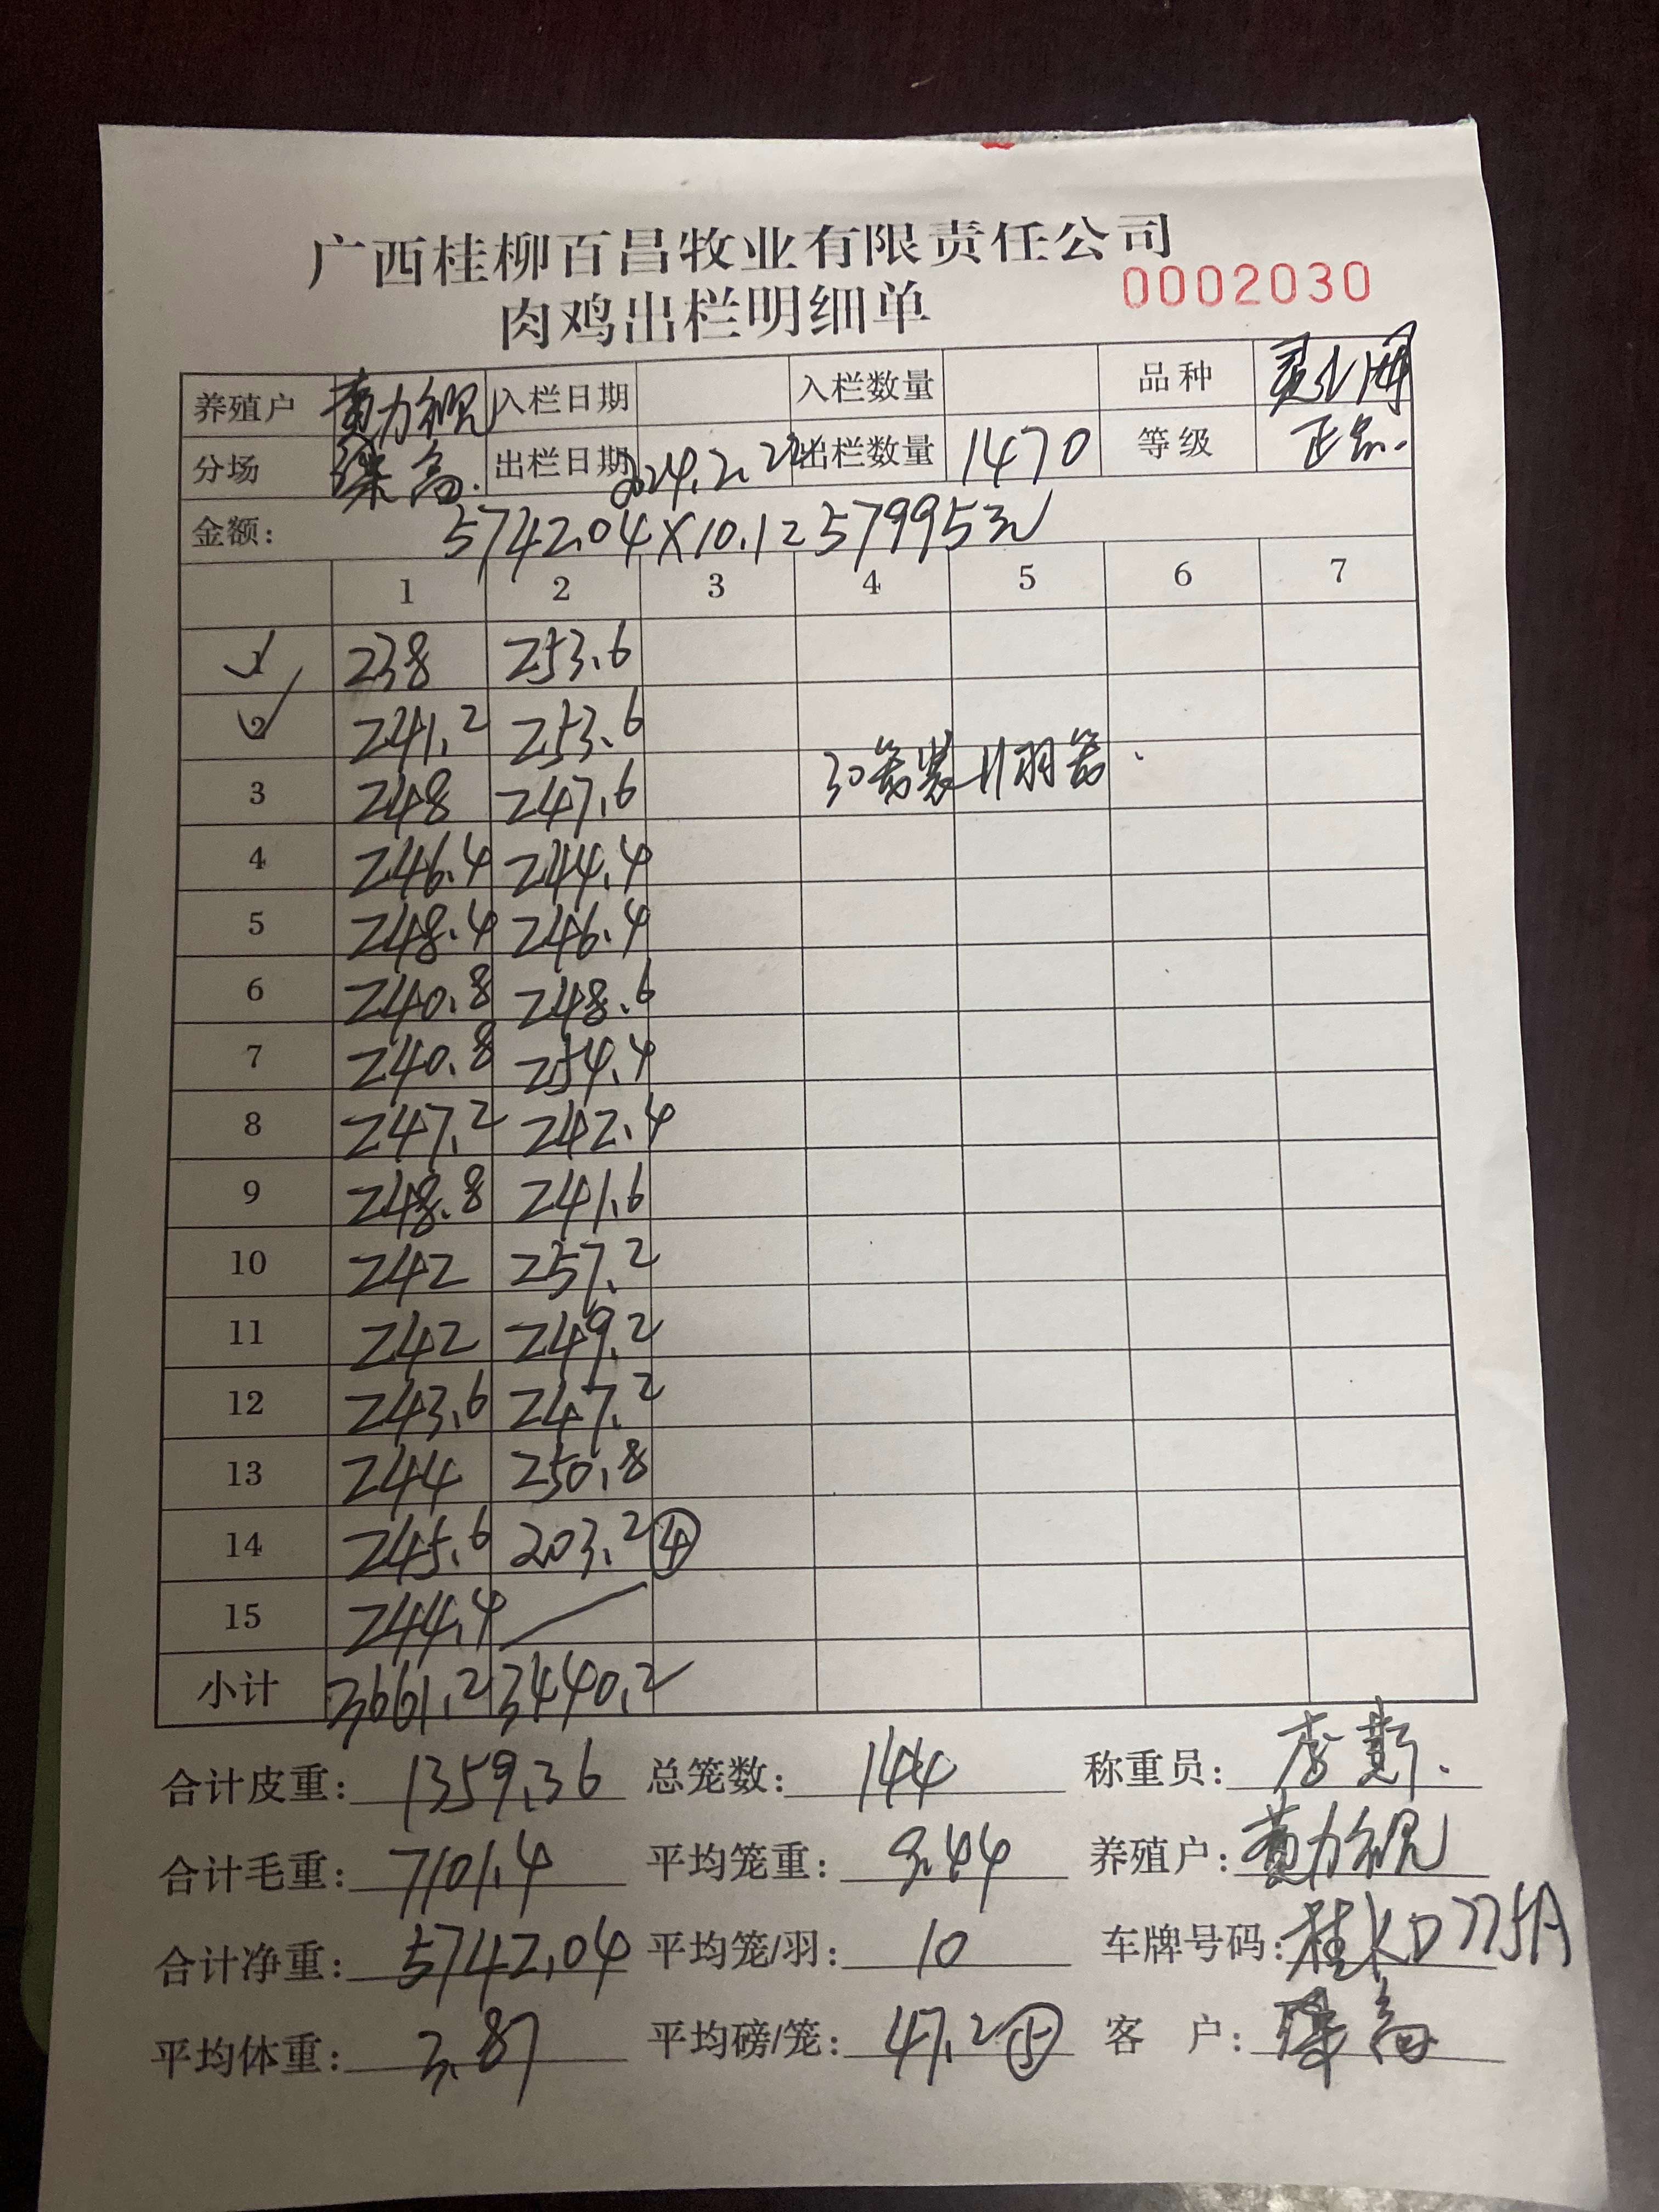 广西桂柳百昌牧业有限责任公司
肉鸡出栏明细单 0002030
养殖户 黄力祝 入栏日期 入栏数量 品种
分场 出栏日期 2024.2.22 出栏数量 1470 等级 正品.
金额: 5742.04×10.1=57995元
1 2 3 4 5 6 7
1 238 253.6
2 241.2 253.6
3 248 247.6 30笼装11羽笼.
4 246.4 244.4
5 248.4 246.4
6 240.8 248.6
7 240.8 254.4
8 247.2 242.4
9 248.8 241.6
10 242 257.2
11 242 249.2
12 243.6 247.2
13 244 250.8
14 245.6 203.2 ④
15 244.4
小计 3661.2 3440.2
合计皮重: 1359.36 总笼数: 144 称重员:
合计毛重: 7101.4 平均笼重: 9.44 养殖户: 黄力祝
合计净重: 5742.04 平均笼/羽: 10 车牌号码: 桂KD775A
平均体重: 3.87 平均磅/笼: 47.2 ⑤ 客 户: